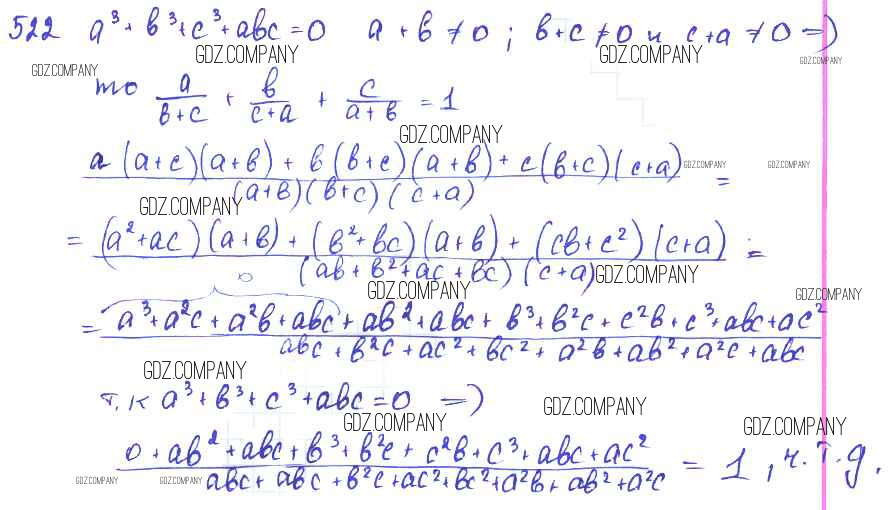 522 a³ + в³ + c³ + abc = 0 a + b ≠ 0 ; в + c ≠ 0 и c + a ≠ 0 =>
GDZ.COMPANY GDZ.COMPANY GDZ.COMPANY GDZ.COMPANY
то a/(в+c) + в/(c+a) + c/(a+в) = 1
GDZ.COMPANY
a(a+c)(a+в) + в(в+c)(a+в) + c(в+c)(c+a) / (a+в)(в+c)(c+a) =
GDZ.COMPANY GDZ.COMPANY GDZ.COMPANY
= (a²+ac)(a+в) + (в²+вc)(a+в) + (cв+c²)(c+a) / (aв+в²+ac+вc)(c+a) =
GDZ.COMPANY GDZ.COMPANY GDZ.COMPANY
0
= a³+a²c+a²в+aвc+aв²+aвc+в³+в²c+c²в+c³+aвc+ac² / aвc+в²c+ac²+вc²+a²в+aв²+a²c+aвc
GDZ.COMPANY
т.к a³+в³+c³+aвc=0 =>
GDZ.COMPANY GDZ.COMPANY GDZ.COMPANY
0+aв²+aвc+в³+в²c+c²в+c³+aвc+ac² / aвc+aвc+в²c+ac²+вc²+a²в+aв²+a²c = 1, ч.т.д.
GDZ.COMPANY GDZ.COMPANY